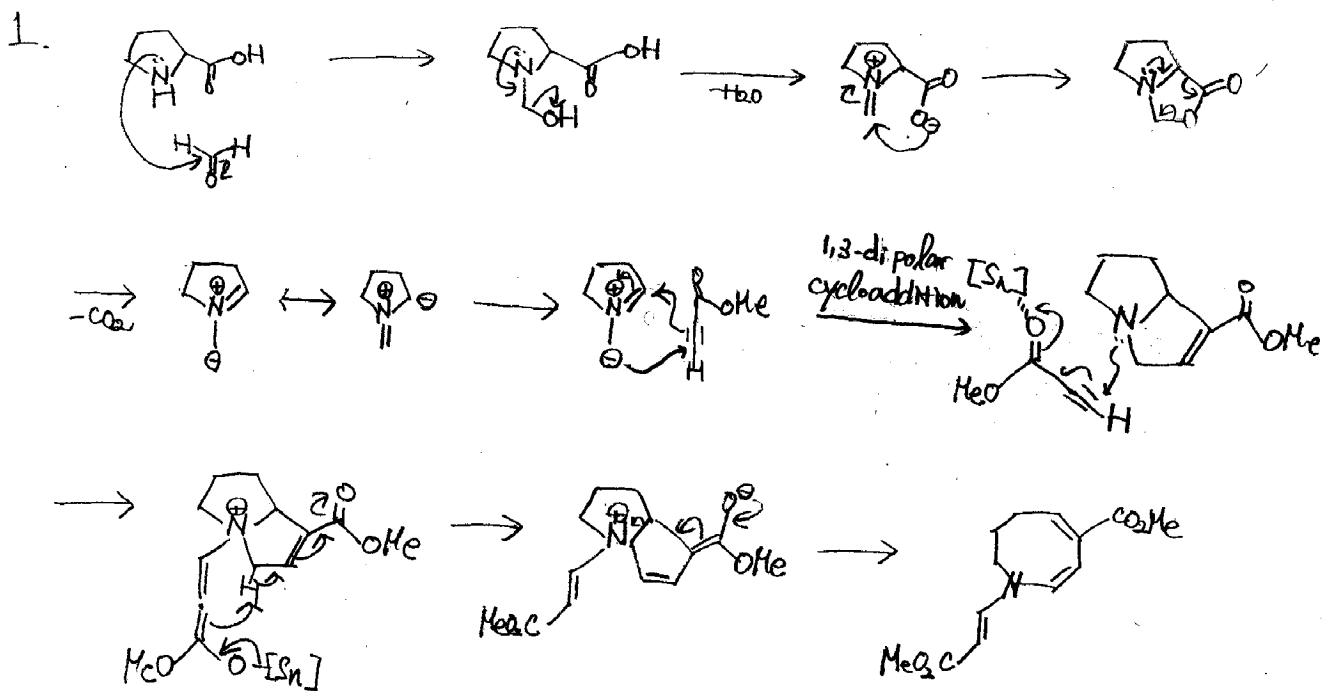 1.
N H OH O H H O
N OH O OH
-H2O
⊕ N O O ⊖
N O O
-CO2
⊕ N ⊖
⊕ N ⊖
⊕ N ⊖ O OMe H
1,3-dipolar
cycloaddition
[Sn] O MeO H
N O OMe
⊕ N H O OMe MeO O-[Sn]
⊕ N O⊖ OMe MeO2C
N CO2Me MeO2C